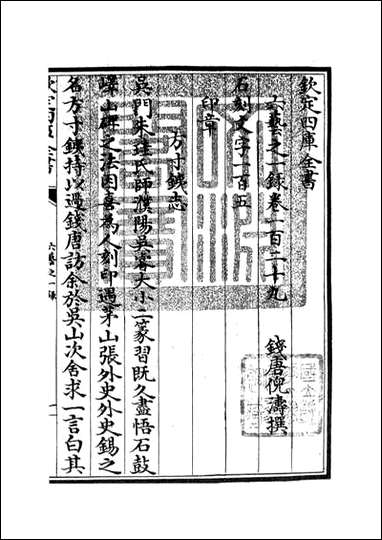 欽定四庫全書
六藝之一錄卷一百二十九
錢唐倪濤撰
石刻文字一百五
印章
方寸鐵志
吳門朱珪氏師濮陽吳睿大小二篆習既久盡悟石鼓
嶧山碑之法因喜為人刻印遇茅山張外史外史錫之
名方寸鐵持以過錢唐訪余於吳山次舍求一言白其
欽定四庫全書
六藝之一錄